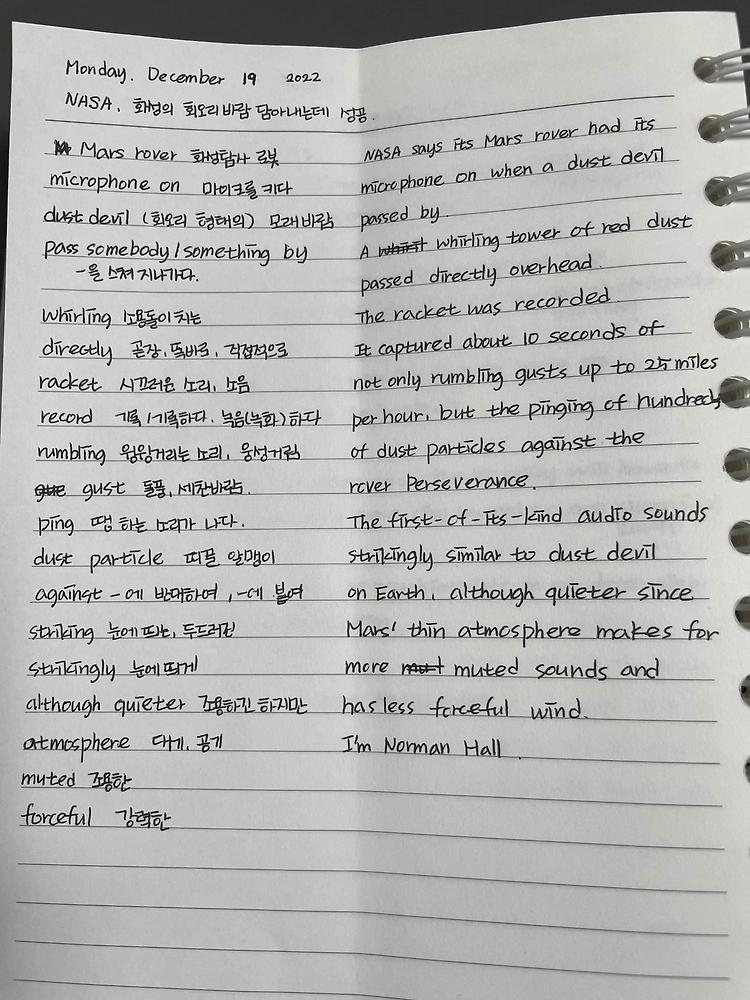 Monday. December 19 2022
NASA, 화성의 회오리바람 담아내는데 성공.
Mars rover 화성탐사 로봇
microphone on 마이크를 키다
dust devil (회오리 형태의) 모래바람
pass somebody/something by
-을 스쳐 지나가다.
whirling 소용돌이치는
directly 곧장, 똑바로, 직접적으로
racket 시끄러운 소리, 소음
record 기록/기록하다. 녹음(녹화)하다
rumbling 웅웅거리는 소리, 웅성거림
gust 돌풍, 세찬바람.
ping 땡 하는 소리가 나다.
dust particle 띠끌 알맹이
against -에 반대하여, -에 붙여
striking 눈에 띄는, 두드러진
strikingly 눈에 띄게
although quieter 조용하긴 하지만
atmosphere 대기, 공기
muted 조용한
forceful 강력한
NASA says its Mars rover had its
microphone on when a dust devil
passed by.
A whirling tower of red dust
passed directly overhead.
The racket was recorded.
It captured about 10 seconds of
not only rumbling gusts up to 25 miles
per hour, but the pinging of hundreds
of dust particles against the
rover Perseverance.
The first-of-its-kind audio sounds
strikingly similar to dust devil
on Earth, although quieter since
Mars' thin atmosphere makes for
more muted sounds and
has less forceful wind.
I'm Norman Hall.